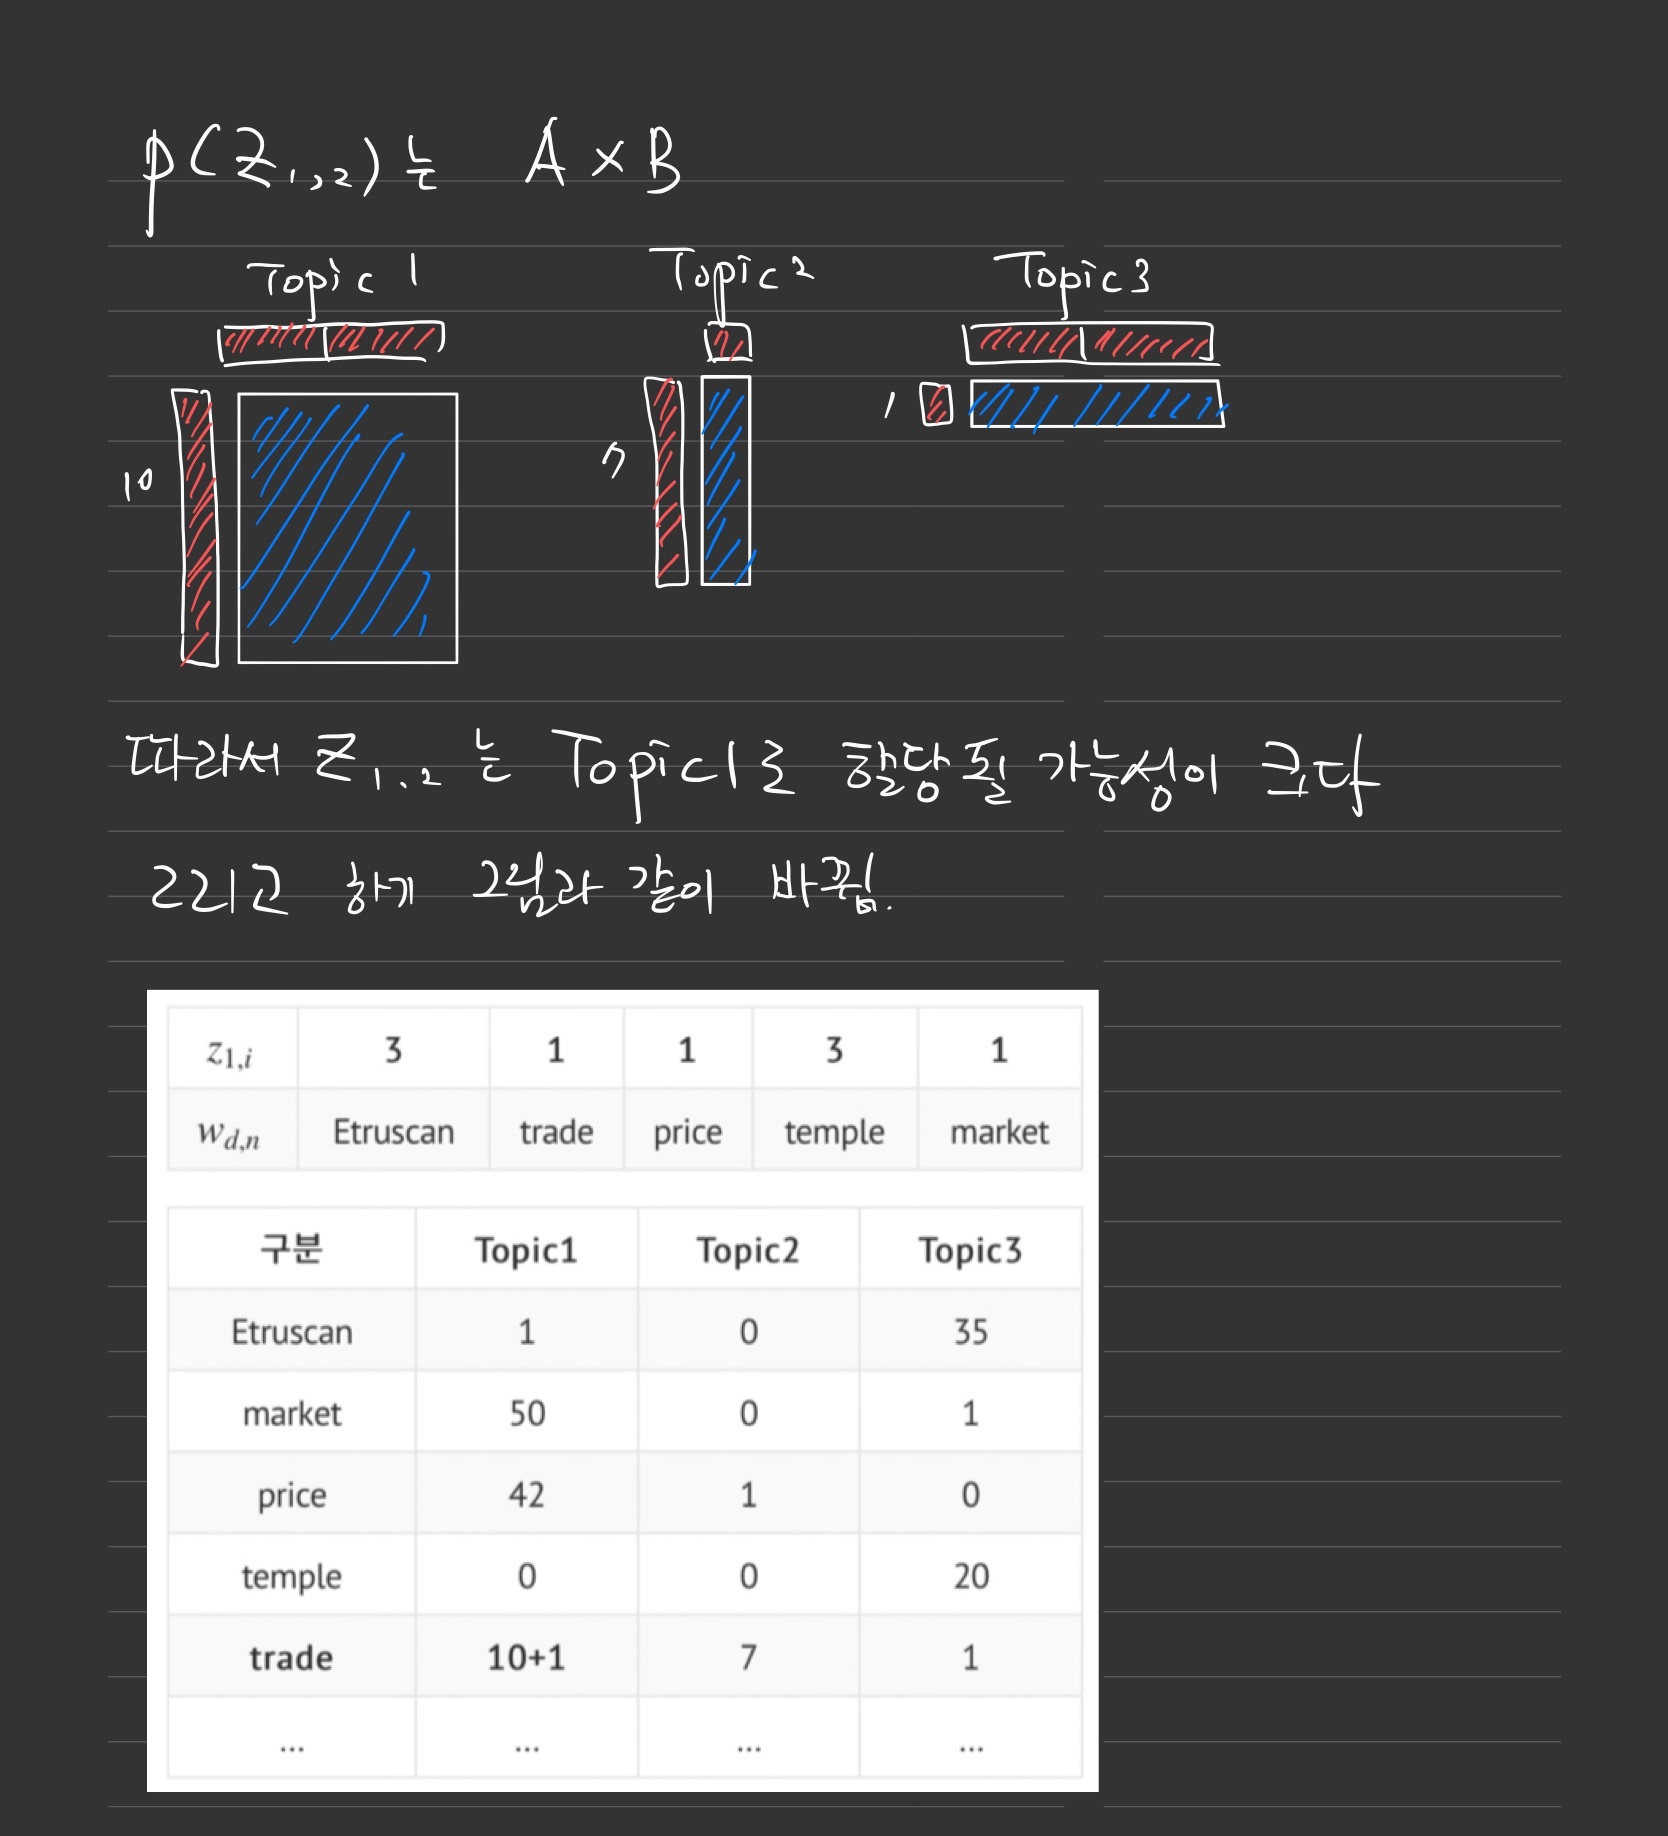 p(Z1,2)는 A×B
Topic 1 Topic 2 Topic 3
10 7 1
따라서 Z1,2는 Topic1로 할당될 가능성이 크다
그리고 하기 그림과 같이 바뀜.
z1,i 3 1 1 3 1
wd,n Etruscan trade price temple market
구분 Topic1 Topic2 Topic3
Etruscan 1 0 35
market 50 0 1
price 42 1 0
temple 0 0 20
trade 10+1 7 1
... ... ... ...